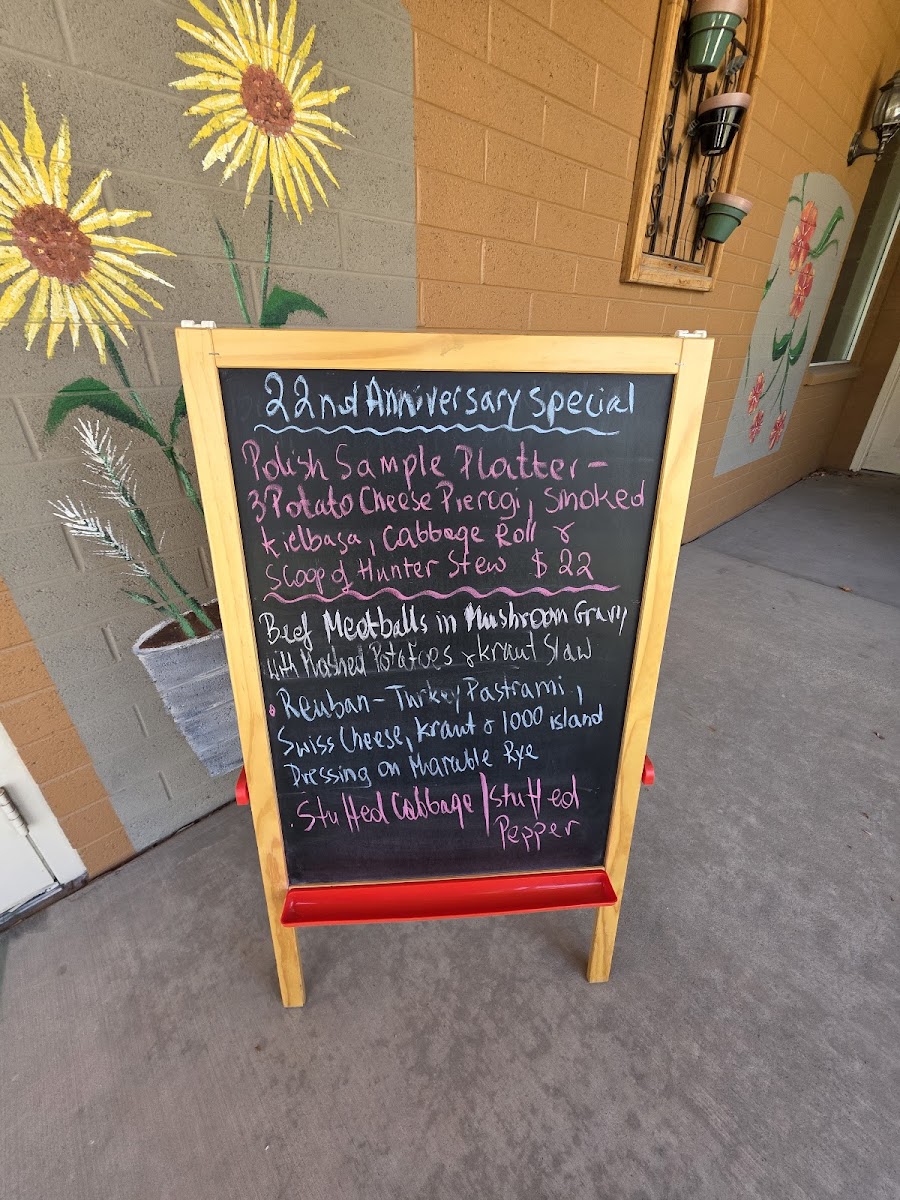 22nd Anniversary special
Polish Sample Platter -
3 Potato Cheese Pierogi, smoked
kielbasa, Cabbage Roll &
Scoop of Hunter Stew $22
Beef Meatballs in Mushroom Gravy
with Mashed Potatoes & kraut Slaw
Reuban - Turkey Pastrami,
Swiss Cheese, kraut & 1000 island
Dressing on Marable Rye
Stuffed Cabbage | Stuffed
Pepper